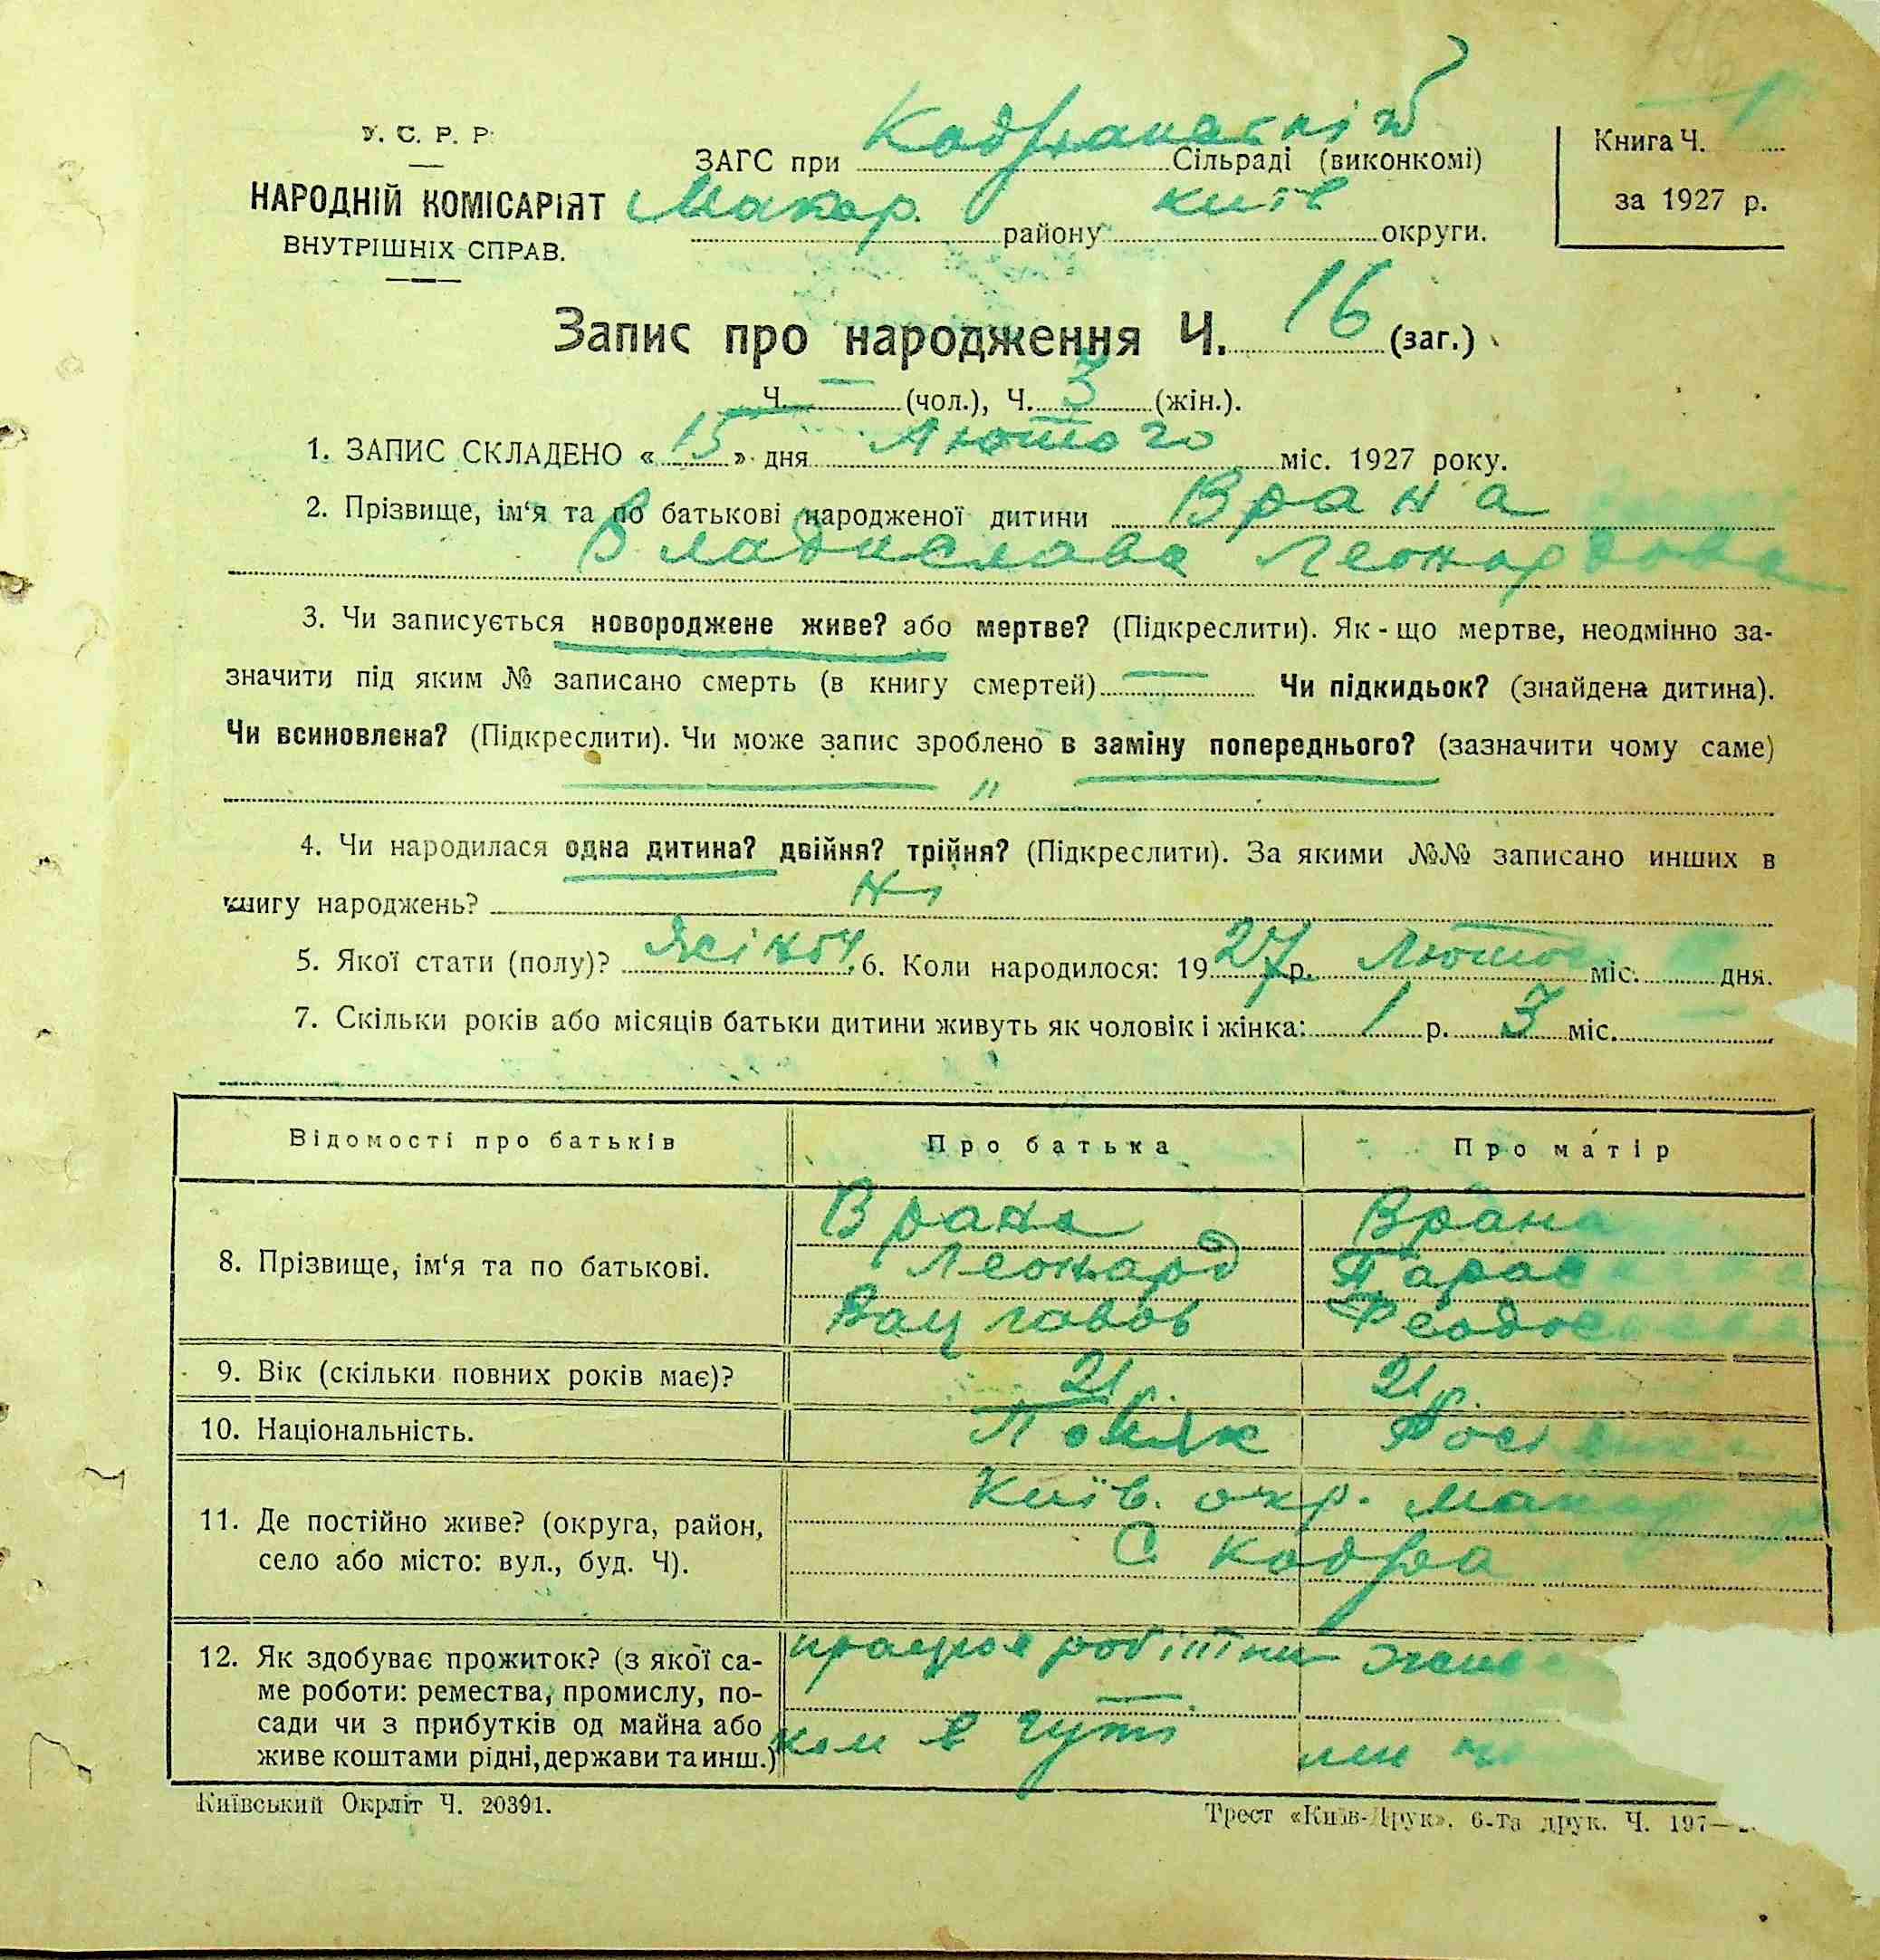 У. С. Р. Р.
НАРОДНІЙ КОМІСАРІЯТ
ВНУТРІШНІХ СПРАВ.
ЗАГС при Сільраді (виконкомі)
Макар. району Київ округи.
Книга Ч. 1
за 1927 р.
Запис про народження Ч. 16 (заг.)
Ч. — (чол.), Ч. 3 (жін.).
1. ЗАПИС СКЛАДЕНО «15» дня Лютого міс. 1927 року.
2. Прізвище, ім‘я та по батькові народженої дитини Врана
Владислава Леонардова
3. Чи записується новороджене живе? або мертве? (Підкреслити). Як-що мертве, неодмінно за-
значити під яким № записано смерть (в книгу смертей) — Чи підкидьок? (знайдена дитина).
Чи всиновлена? (Підкреслити). Чи може запис зроблено в заміну попереднього? (зазначити чому саме)
"
4. Чи народилася одна дитина? двійня? трійня? (Підкреслити). За якими №№ записано инших в
книгу народжень?
5. Якої стати (полу)? 6. Коли народилося: 1927 р. міс. дня.
7. Скільки років або місяців батьки дитини живуть як чоловік і жінка: 1 р. 3 міс.
Відомості про батьків Про батька Про матір
8. Прізвище, ім‘я та по батькові.
Врана Врана
Леонард
Вацлавов
9. Вік (скільки повних років має)? 21 р. 21 р.
10. Національність. Поляк
11. Де постійно живе? (округа, район,
село або місто: вул., буд. Ч).
Київ. окр.
С Кодра
12. Як здобуває прожиток? (з якої са-
ме роботи: ремества, промислу, по-
сади чи з прибутків од майна або
живе коштами рідні, держави та инш.)
працює робітни
ком в гуті
Київський Окрліт Ч. 20391.
Трест «Київ-Друк». 6-та друк. Ч. 197—